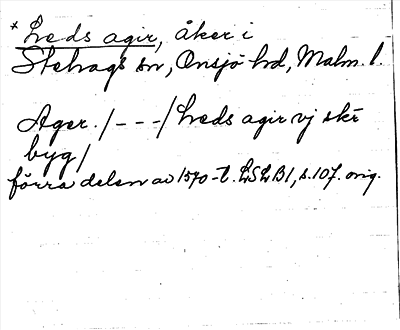 * Hreds agir, åker i
Stehags sn, Onsjö hd, Malm. l.
Ager. /---/ hreds agir vj skr
byg /
förra delen av 1570-t. LSLB1, s. 107. orig.